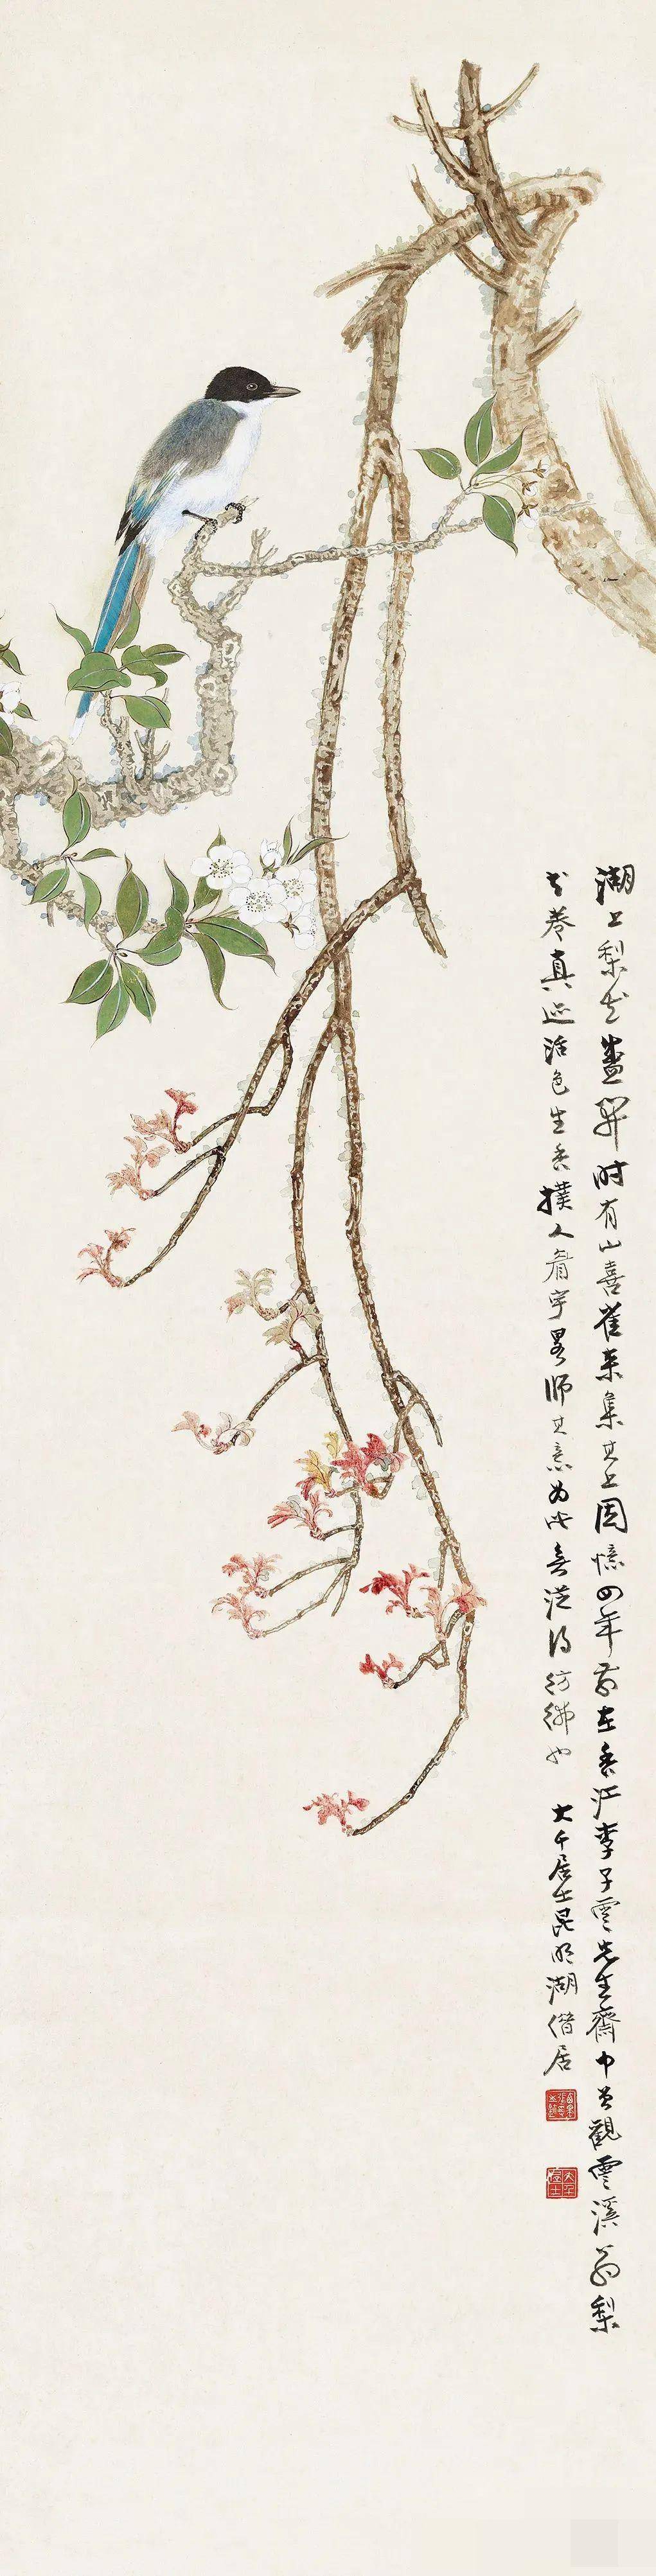 湖上梨花盛开时有山喜雀来集其上因憶四年前在香江李子云先生齋中曾觀雲溪翁梨
花卷真迹活色生香撲人眉宇畧師其意为此無從得彷彿也　大千居士昆明湖借居
大千居士